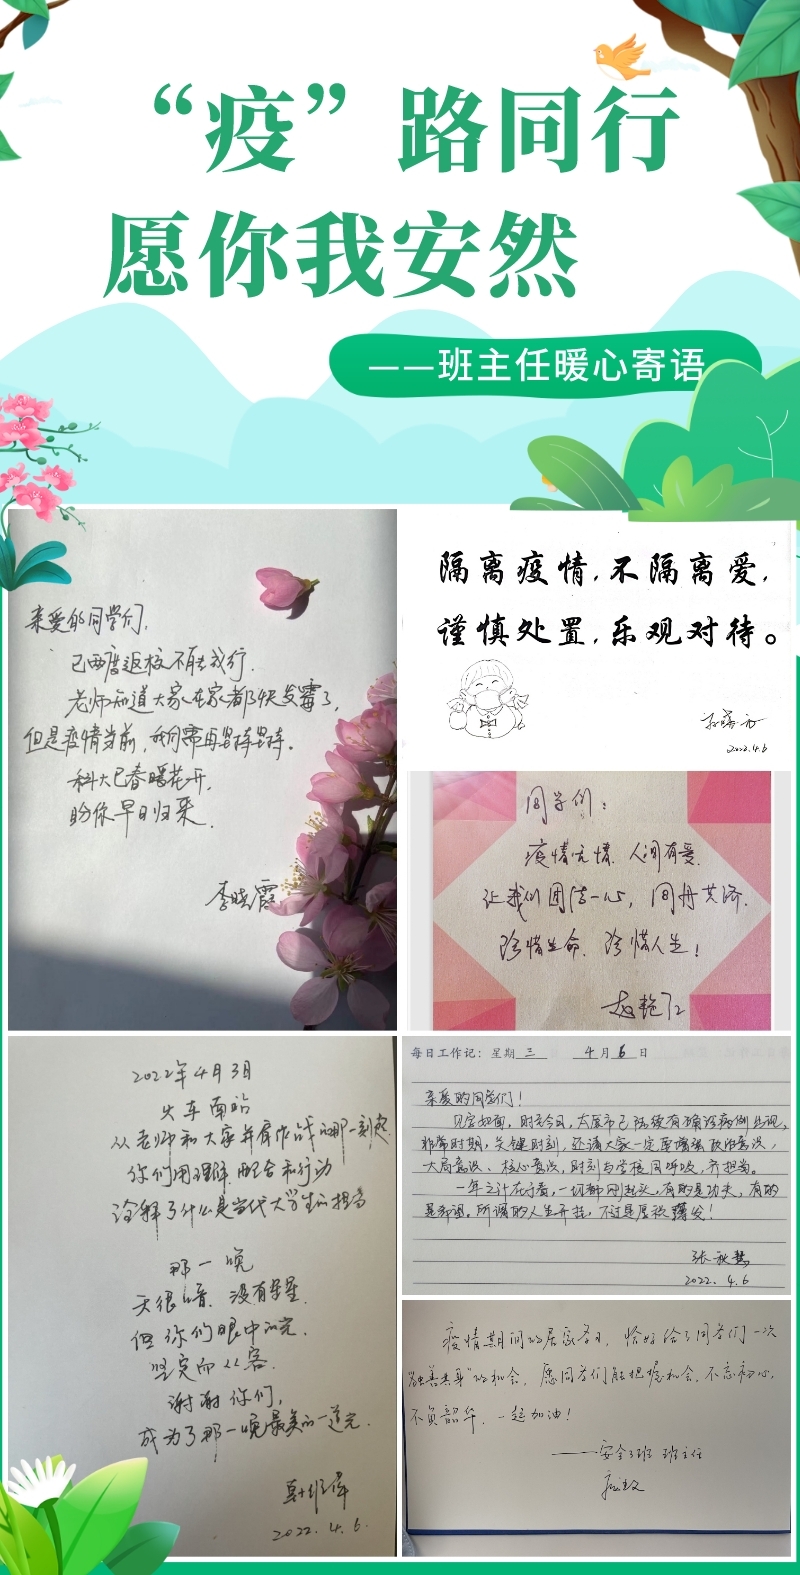 “疫”路同行
愿你我安然
——班主任暖心寄语
亲爱的同学们，
已两度返校不能成行.
老师知道大家在家都快发霉了，
但是疫情当前，我们需再坚持坚持。
科大已春暖花开，
盼你早日归来.
李晓霞
隔离疫情，不隔离爱，
谨慎处置，乐观对待。
2022.4.6
同学们：
疫情无情，人间有爱.
让我们团结一心，同舟共济.
珍惜生命，珍惜人生！
2022年4月3日
火车南站
从老师和大家并肩作战的那一刻起
你们用理解.配合和行动
诠释了什么是当代大学生的担当
那一晚
天很暗.没有星星
但你们眼中的光.
坚定而从容.
谢谢你们，
成为了那一晚最美的一道光.
2022.4.6.
每日工作记：星期 三 4月6日
亲爱的同学们！
见字如面，时至今日，太原市已陆续有确诊病例出现，
非常时期，关键时刻，还请大家一定要增强政治意识、
大局意识、核心意识，时刻与学校同呼吸，齐担当。
一年之计在于春，一切都刚起头，有的是功夫，有的
是希望。所谓的人生开挂，不过是厚积薄发！
张秋慧
2022.4.6
疫情期间的居家学习，恰好给了同学们一次
“独善其身”的机会，愿同学们能把握机会，不忘初心，
不负韶华，一起加油！
——安全3班 班主任